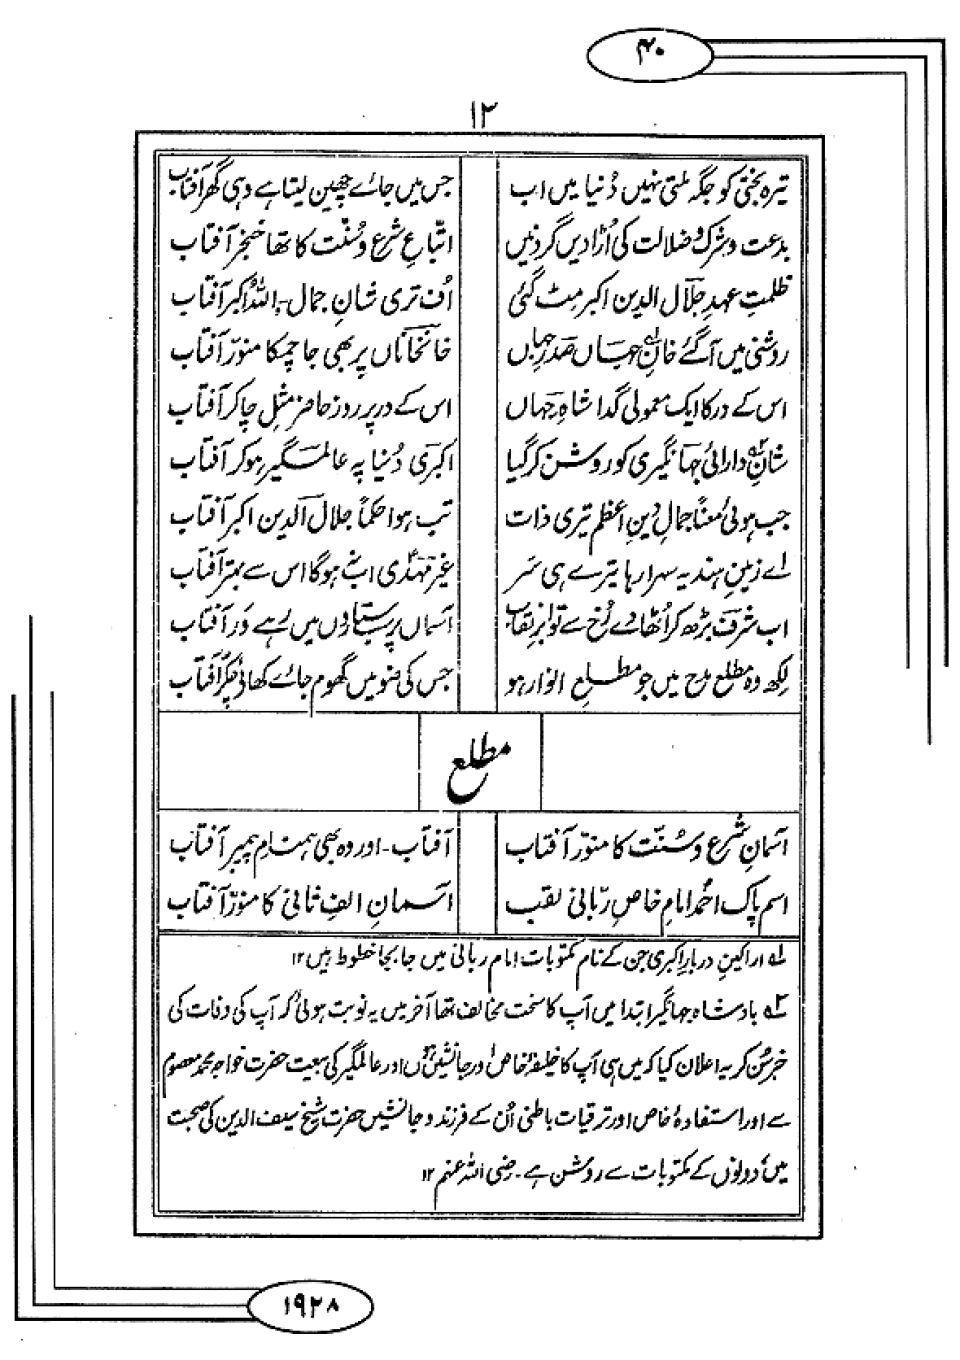 ۴۰
۱۲
تیرہ بختی کو جگہ ملتی نہیں دُنیا میں اب جس میں جائے چھین لیتا ہے وہی گھر آفتاب
بدعت و شرک و ضلالت کی اُڑا دیں گردنیں اتّباعِ شرع و سُنّت کا تھا خنجر آفتاب
ظلمتِ عہدِ جلال الدین اکبر مٹ گئی اُف تری شانِ جمال ۔ اللہُ اکبر آفتاب
روشنی میں آ گئے خانِ جہاں صدرِ جہاں خانخاناں پر بھی جا چمکا منوّر آفتاب
اس کے در کا ایک معمولی گدا شاہِ جہاں اس کے در پر روز حاضر مثلِ چاکر آفتاب
شانِ دارائی جہانگیری کو روشن کر گیا اکبری دُنیا پہ عالمگیر ہو کر آفتاب
جب ہوئی معناً جمالِ دینِ اعظم تیری ذات تب ہوا حکماً جلال الدین اکبر آفتاب
اے زمینِ ہند یہ سہرا رہا تیرے ہی سَر غیر مہدی اب نہ ہوگا اس سے بہتر آفتاب
اب شرف بڑھ کر اُٹھا دے رُخ سے تو ابرِ نقاب آسماں پر ستاروں میں رہے دَر آفتاب
لکھ وہ مطلع مدح میں جو مطلعِ انوار ہو جس کی ضو میں گھوم جائے کھائے چکر آفتاب
مطلع
آسمانِ شرع و سُنّت کا منوّر آفتاب آفتاب ۔ اور وہ بھی ہمنامِ پیمبر آفتاب
اسم پاک احمد امامِ خاصِ ربّانی لقب آسمانِ الفِ ثانی کا منوّر آفتاب
لہ اراکینِ دربارِ اکبری جن کے نام مکتوبات امام ربانی میں جا بجا خطوط ہیں ۱۲
۲؎ بادشاہ جہانگیر ابتدا میں آپ کا سخت مخالف تھا آخر میں یہ نوبت ہوئی کہ آپ کی وفات کی
خبر سُن کر یہ اعلان کیا کہ میں ہی آپ کا خلیفۂ خاص اور جانشیں ہوں اور عالمگیر کی بیعت حضرت خواجہ محمد معصوم
سے اور استفادۂ خاص اور ترقیات باطنی اُن کے فرزند و جانشیں حضرت شیخ سیف الدین کی صحبت
میں دونوں کے مکتوبات سے روشن ہے ۔ رضی اللہ عنہم ۱۲
۱۹۲۸